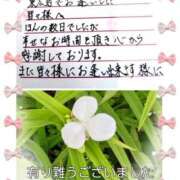 皆様へ
ほんの数日でしたが
幸せなお時間を頂き心から
感謝しております。
また皆様にお逢い出来ます様に
有り難うございました